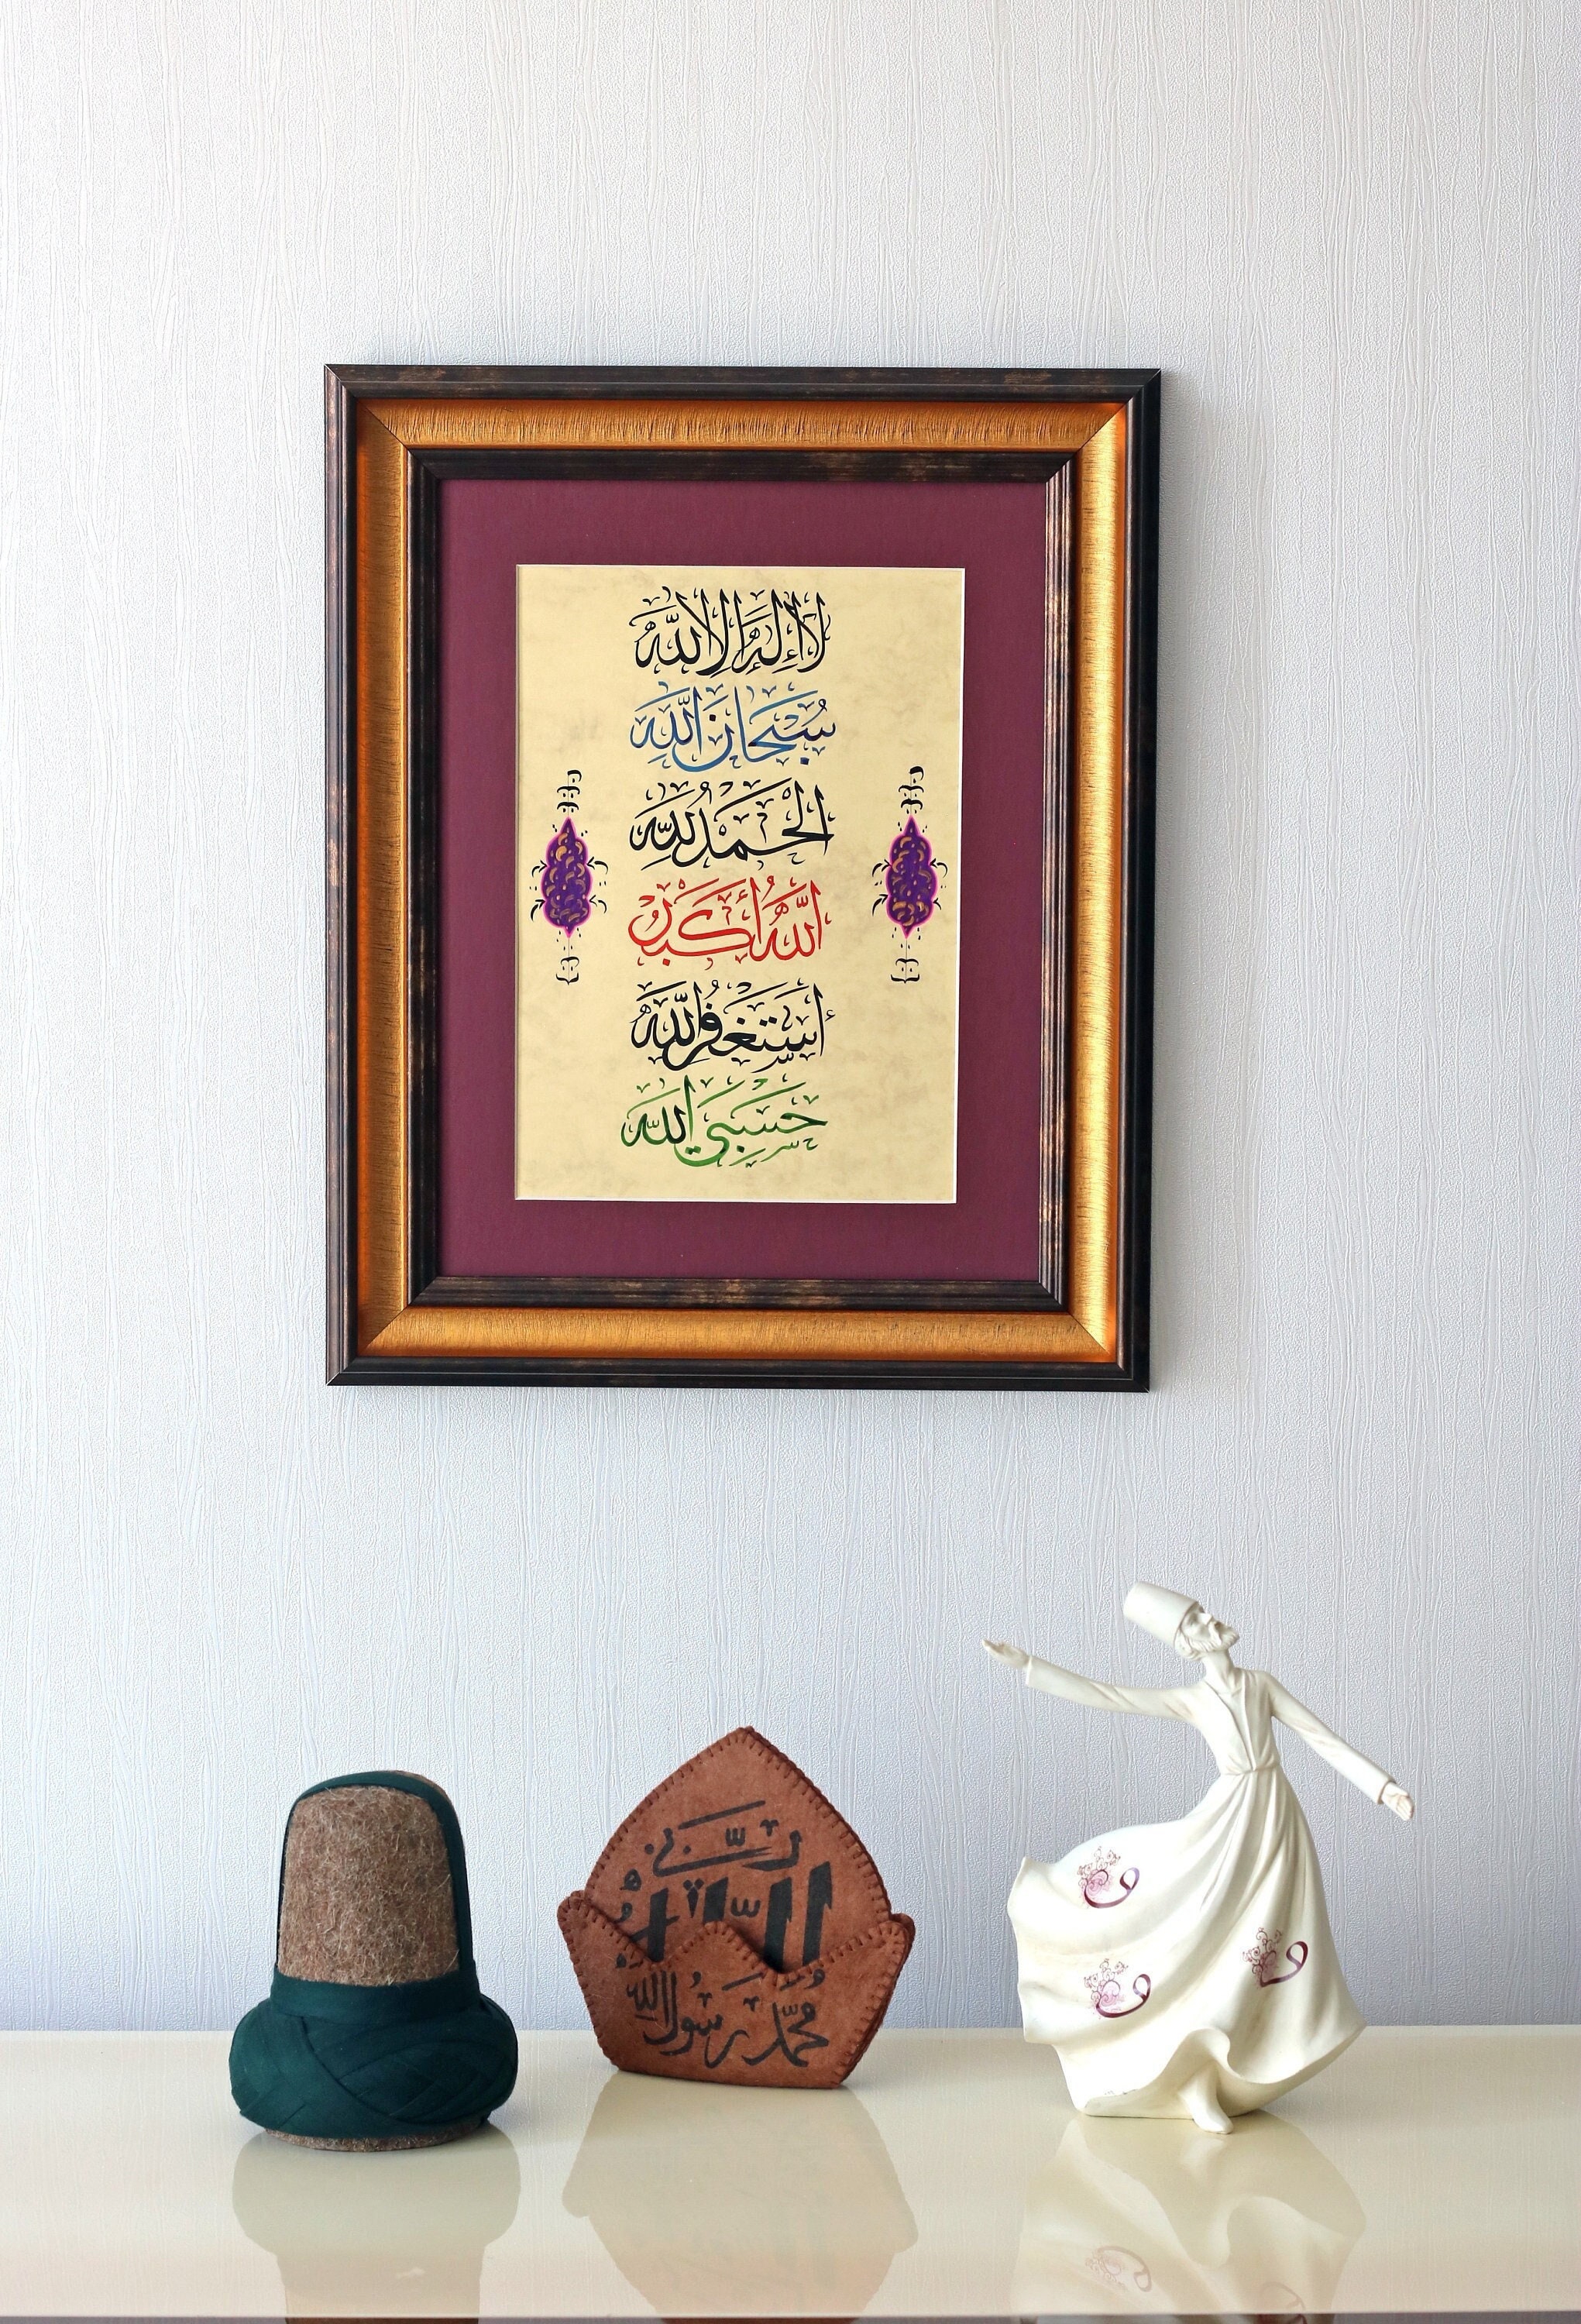 لا إله إلا الله
سبحان الله
الحمد لله
الله أكبر
أستغفر الله
حسبي الله
ربي
الله
محمد رسول الله
و
و
و